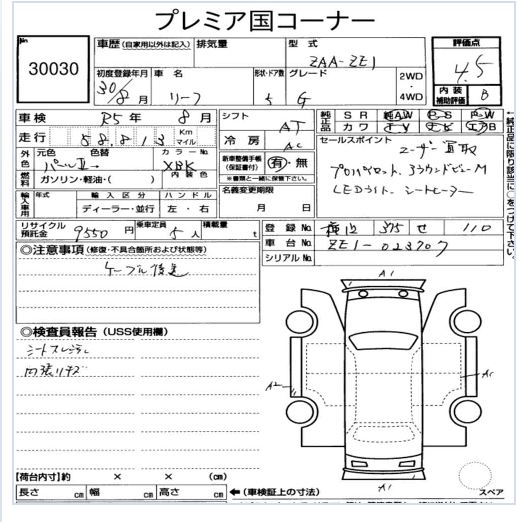 プレミア国コーナー
No
30030
車歴 (自家用以外は記入)
排気量
型式
ZAA-ZE1
評価点
4.5
初度登録年月
30/8月
車名
リーフ
形状・ドア数
5
グレード
G
2WD
・
4WD
内装
補助評価
B
車検 R5年 8月
走行 58,813 Km マイル
シフト
AT
冷房
AC
純正品
SR
純AW
P・S
P・W
カワ
エアB
外色
元色
色替
カラーNo.
パールⅡ→
XBK
燃料
ガソリン・軽油・( )
内装色
新車整備手帳
(保証書付)
有・無
※書類と一緒に保管下さい。
名義変更期限
月 日
セールスポイント
ユーザー買取
プロパイロット、アラウンドビューM
LEDライト シートヒーター
輸入車用
年式
輸入区分
ハンドル
ディーラー・並行
左・右
リサイクル
預託金
9550円
乗車定員
5人
積載量
t
登録No.
375 せ 110
車台No.
ZE1-023707
シリアルNo.
◎注意事項 (修復・不具合箇所および状態等)
ケーブル
◎検査員報告 (USS使用欄)
シートスレ
内張りキズ
A1
A2
A1
A1
【荷台内寸】約 × × (cm)
長さ cm
幅 cm
高さ cm
←(車検証上の寸法)
スペア
←純正品に限り該当に○をつけて下さい。